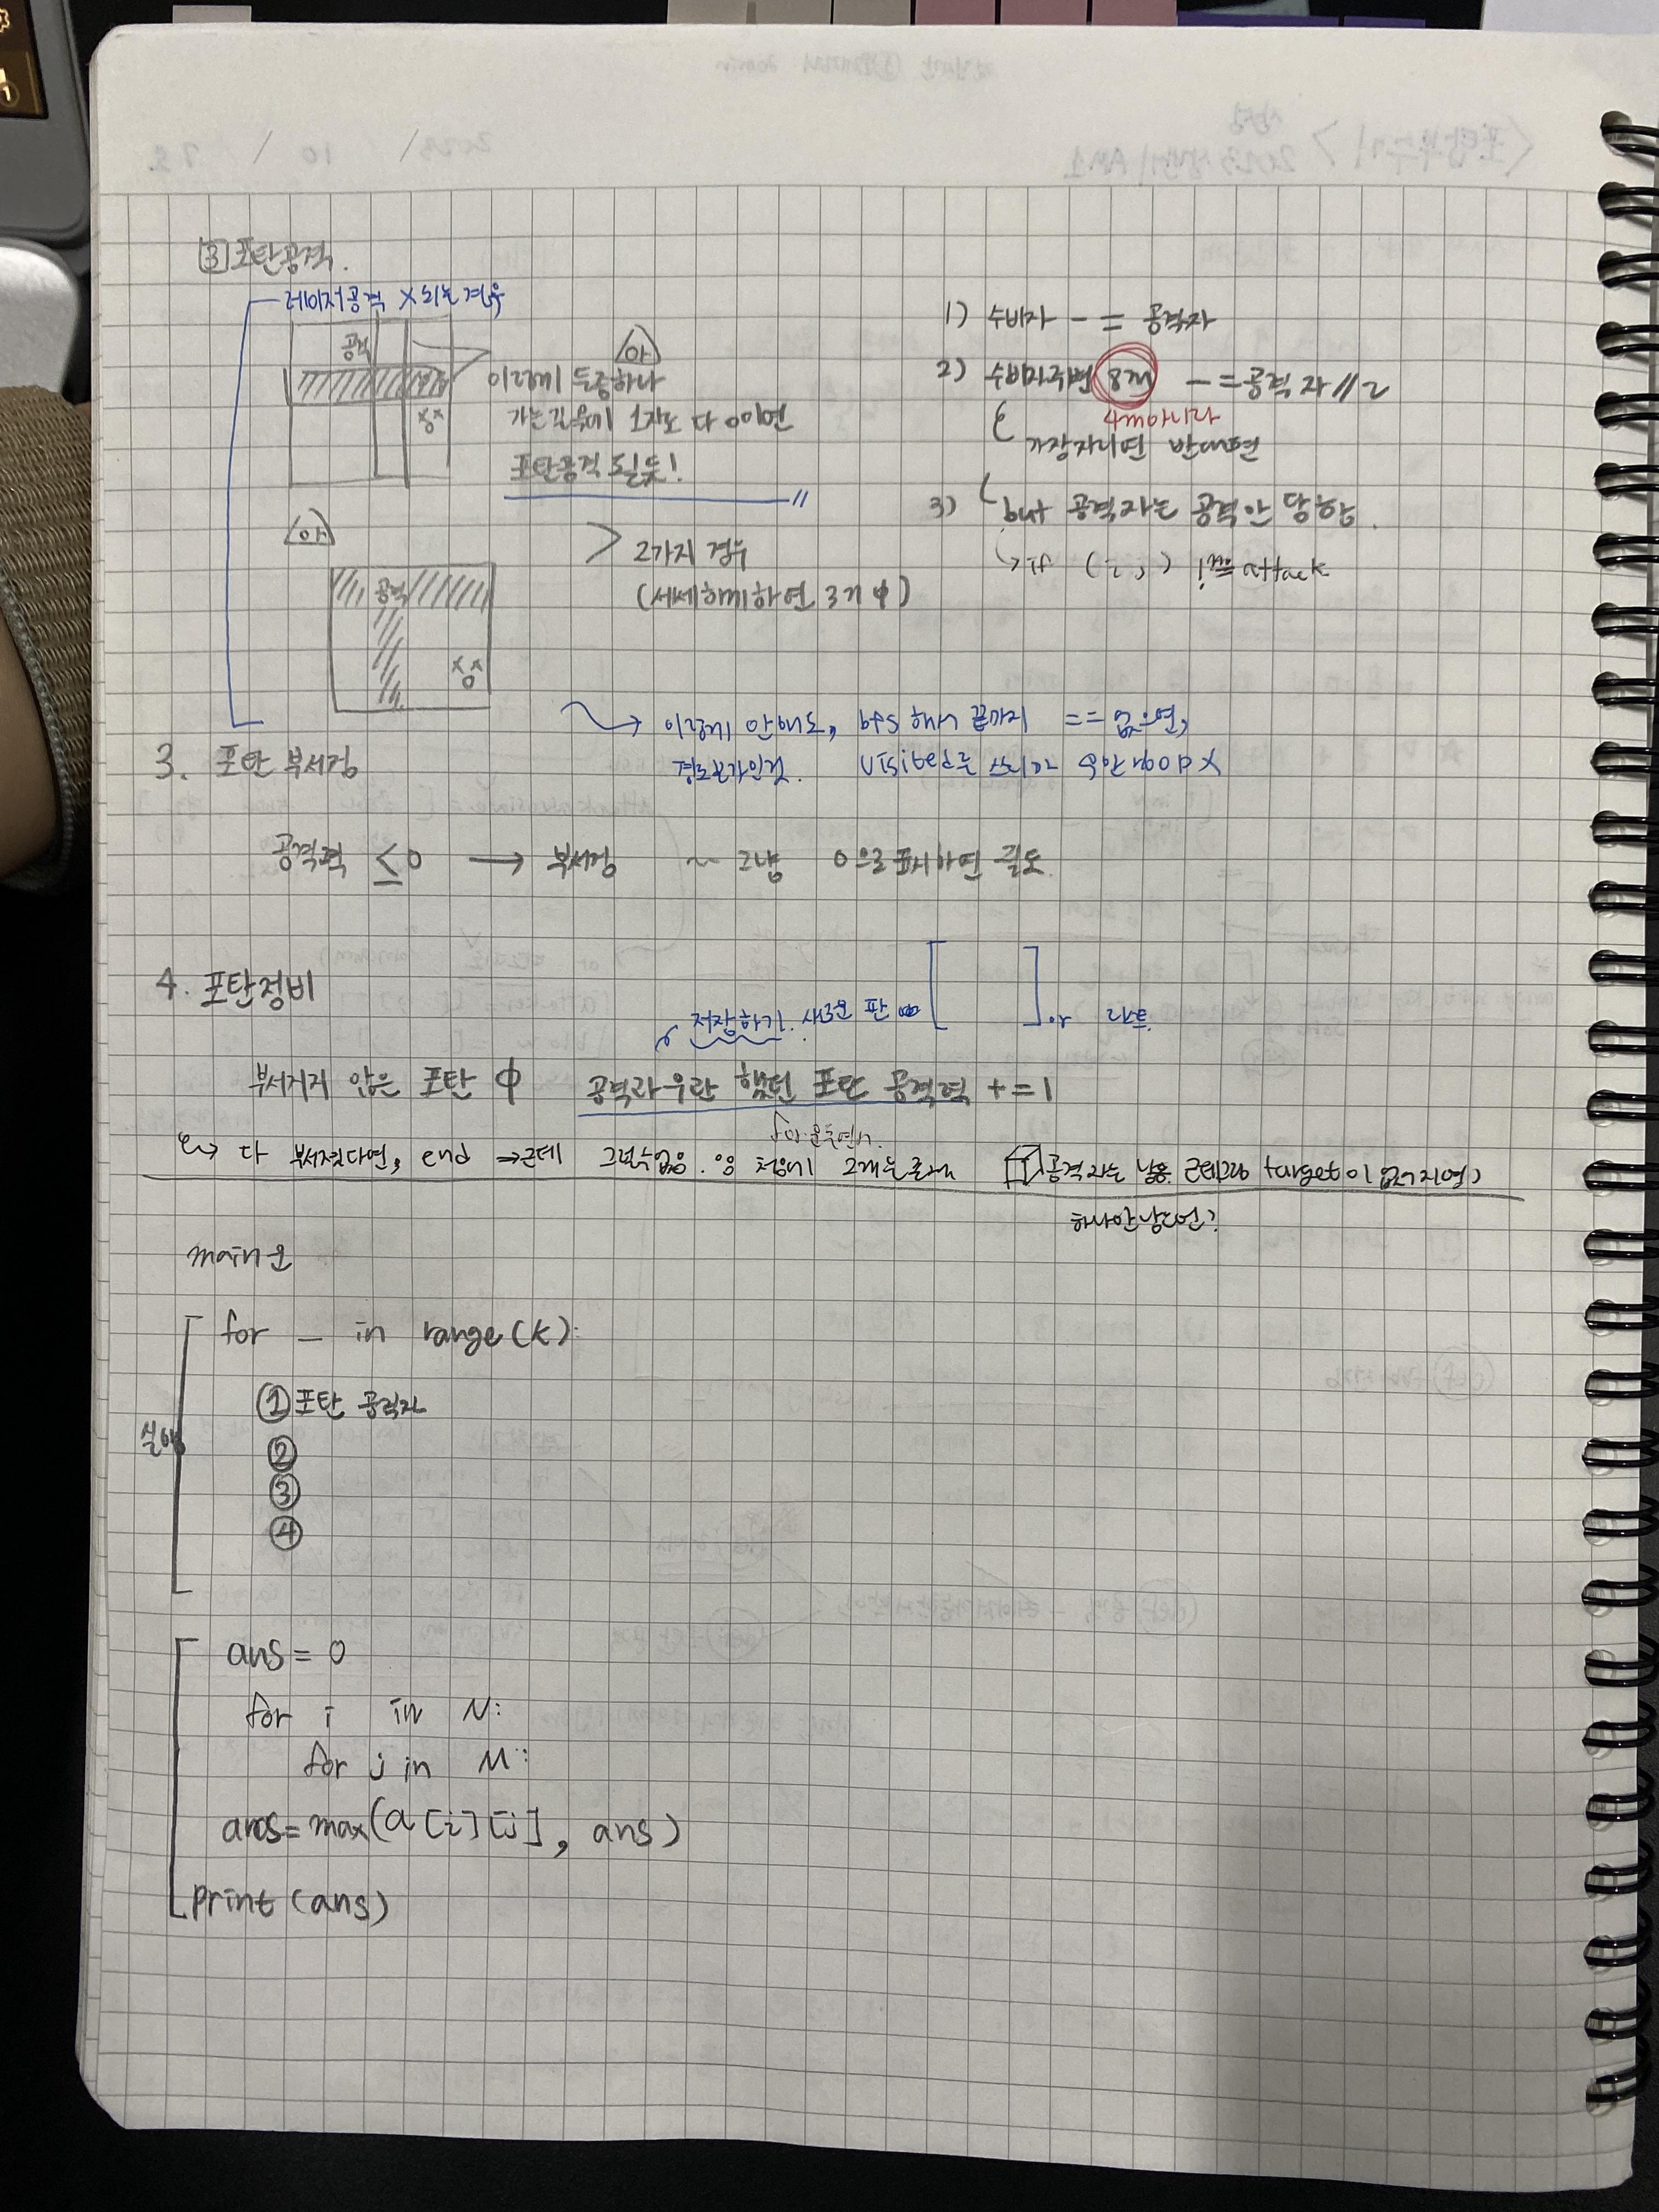 ③ 포탄공격.
레이저공격 X 되는 경우
공격
상
아
이렇게 두줄하나
가는길목에 1자로 다 0이면
포탄공격 되듯!
아
공격
상
> 2가지 경우
(세세하게하면 3가지)
1) 수비자 -= 공격자
2) 수비자주변 8개 -= 공격자//2
4way아니라
가장자리면 반대편
3) but 공격자는 공격안 당함.
↳ if (i, j) != attack
→ 이렇게 안해도, bfs 해서 끝까지 == 없으면,
경로문가인것. visited를 쓰니까 loop X
3. 포탄 부서짐
공격력 ≤0 → 부서짐 ~ 그냥 0으로 표시하면 될도
4. 포탄정비
저장하기. 새로운 판 [ ] or 리스트
부서지지 않은 포탄 중 공격과 무관 했던 포탄 공격력 +=1
for 문 두면서.
↳ 다 부서졌다면, end ⇒근데 그럴수없음. 왜? 처음에 2개는
공격자는 남음. 근데 그럼 target이 없어지면?
하나만남으면?
main 은
for _ in range(K):
① 포탄 공격자
②
③
④
실행
ans = 0
for i in N:
for j in M:
ans = max(a[i][j], ans)
print(ans)